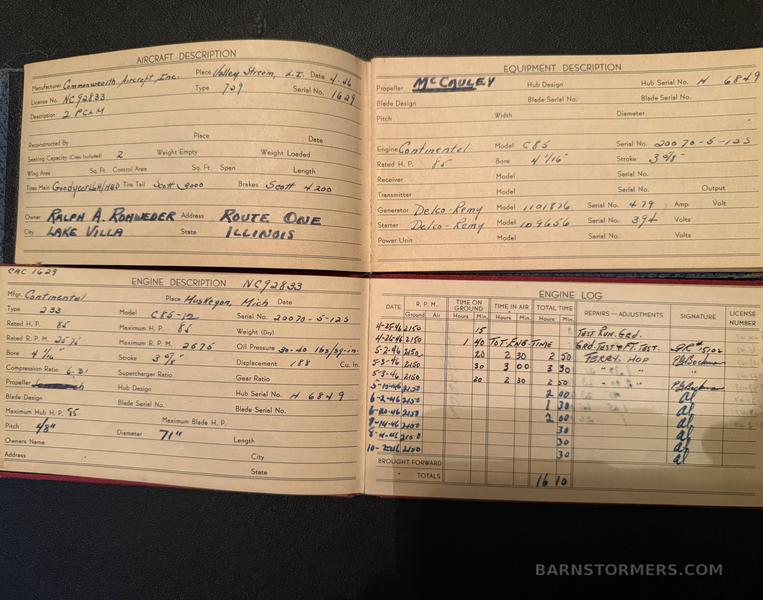 AIRCRAFT DESCRIPTION
Manufacturer Commonwealth Aircraft Inc. Place Valley Stream, L.I. Date 4-46
License No. NC92833 Type 729 Serial No. 1629
Description 2 PCLM
Reconstructed By Place Date
Seating Capacity (Crew Included) 2 Weight Empty Weight Loaded
Wing Area Sq. Ft. Control Area Sq. Ft. Span Length
Tires Main Goodyear Tire Tail Scott 3000 Brakes Scott 4200
Owner RALPH A. ROHWEDER Address ROUTE ONE
City LAKE VILLA State ILLINOIS
EQUIPMENT DESCRIPTION
Propeller McCAULEY Hub Design Hub Serial No. H 6849
Blade Design Blade Serial No. Blade Serial No.
Pitch Width Diameter
Engine Continental Model C85 Serial No. 20070-5-12S
Rated H. P. 85 Bore 4 1/16" Stroke 3 5/8"
Receiver Model Serial No.
Transmitter Model Serial No. Output
Generator Delco-Remy Model 1101876 Serial No. 479 Amp. Volt
Starter Delco-Remy Model 109656 Serial No. 394 Volts
Power Unit Model Serial No. Volts
CAC 1629
ENGINE DESCRIPTION NC92833
Mfgr. Continental Place Muskegon, Mich Date
Type 233 Model C85-12 Serial No. 20070-5-12S
Rated H. P. 85 Maximum H. P. 85 Weight (Dry)
Rated R. P. M. 2575 Maximum R. P. M. 2675 Oil Pressure 30-40 lbs/sq.in.
Bore 4 1/16" Stroke 3 5/8" Displacement 188 Cu. In.
Compression Ratio Supercharger Ratio Gear Ratio
Propeller Hub Design Hub Serial No. H 6849
Blade Design Blade Serial No. Blade Serial No.
Maximum Hub H. P. 85 Maximum Blade H. P.
Pitch 48" Diameter 71" Length
Owners Name City
Address State
ENGINE LOG
DATE R. P. M. TIME ON GROUND TIME IN AIR TOTAL TIME REPAIRS — ADJUSTMENTS SIGNATURE LICENSE NUMBER
Ground Air Hours Min. Hours Min. Hours Min.
4-25-46 2150 15 TEST RUN. GRD.
4-26-46 2150 1 40 TOT. ENG. TIME GRD. TEST & FT. TEST.
5-2-46 2150 20 2 30 2 50 FERRY HOP
5-3-46 2150 30 3 00 3 30 " "
5-3-46 2150 20 2 30 2 50 " "
2150 2 00 al
6-2-46 2150 1 30 al
2150 2 00 al
9-14-46 2150 30 al
2150 30 al
2150 30 al
BROUGHT FORWARD
TOTALS 16 10
BARNSTORMERS.COM